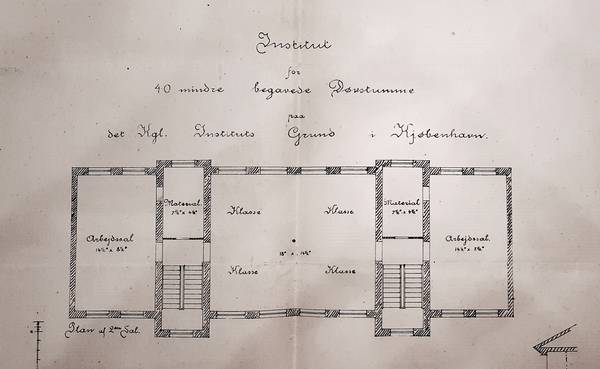 Institut
for
40 mindre begavede Døvstumme
paa
det Kgl. Instituts Grund i Kjøbenhavn.
Material.
Material
Klasse
Klasse
Arbejdssal
Arbejdssal.
Klasse
Klasse
Plan af 2den Sal.